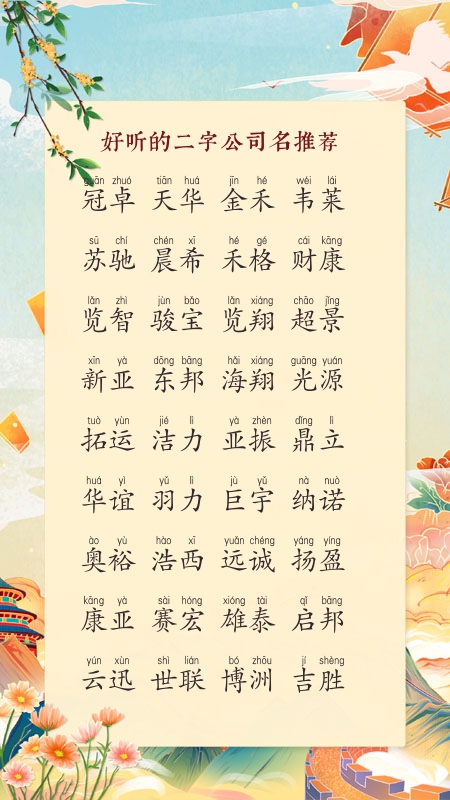 好听的二字公司名推荐
guān zhuó tiān huá jīn hé wéi lái
冠卓 天华 金禾 韦莱
sū chí chén xī hé gé cái kāng
苏驰 晨希 禾格 财康
lǎn zhì jùn bǎo lǎn xiáng chāo jǐng
览智 骏宝 览翔 超景
xīn yà dōng bāng hǎi xiáng guāng yuán
新亚 东邦 海翔 光源
tuò yùn jié lì yà zhèn dǐng lì
拓运 洁力 亚振 鼎立
huá yì yǔ lì jù yǔ nà nuò
华谊 羽力 巨宇 纳诺
ào yù hào xī yuǎn chéng yáng yíng
奥裕 浩西 远诚 扬盈
kāng yà sài hóng xióng tài qǐ bāng
康亚 赛宏 雄泰 启邦
yún xùn shì lián bó zhōu jí shèng
云迅 世联 博洲 吉胜